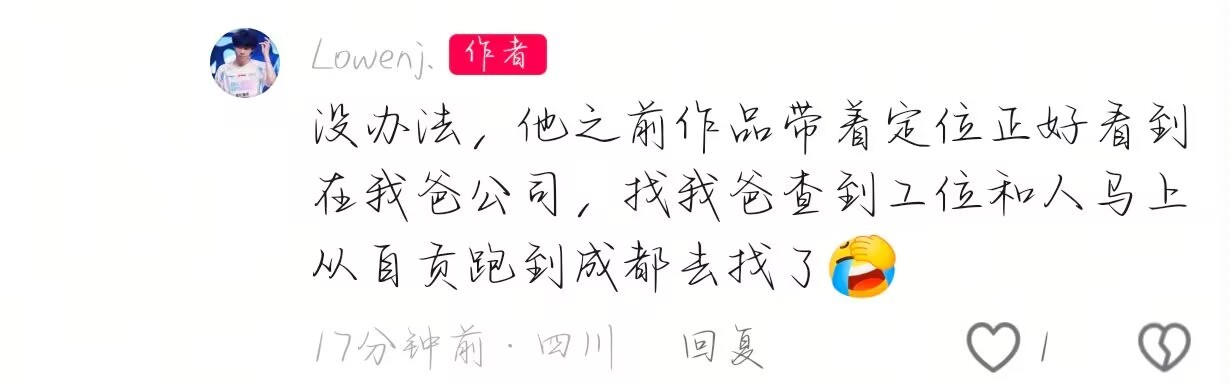 Lowenj. 作者
没办法，他之前作品带着定位正好看到
在我爸公司，找我爸查到工位和人马上
从自贡跑到成都去找了
17分钟前·四川 回复 1